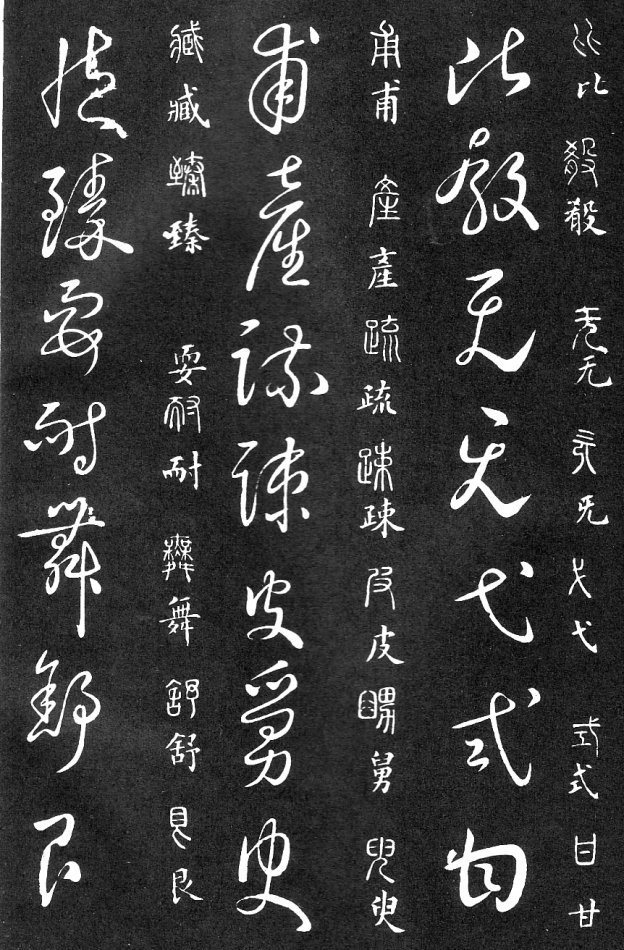 比比殺殺无无旡旡弋弋式式甘甘
比殺无旡弋式甘
甫甫產產疏疏疎疎皮皮舅舅臾臾
甫產疏疎皮舅臾
臧臧臻臻耍耐耐舞舞舒舒艮艮
臧臻耍耐舞舒艮